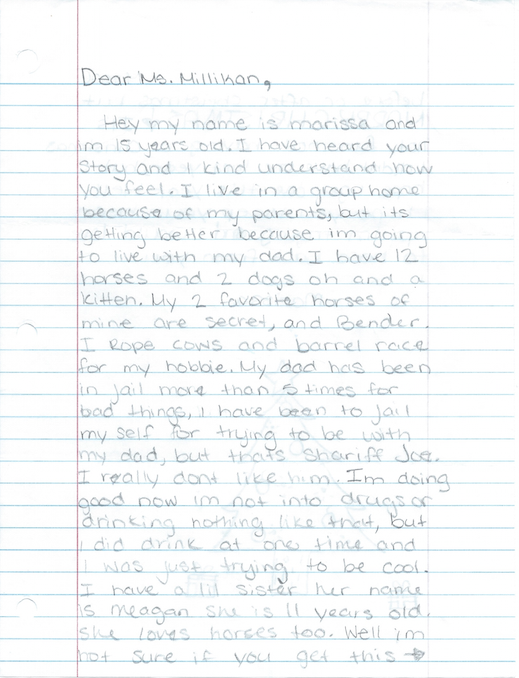 Dear Ms. Millikan,
Hey my name is marissa and
im 15 years old. I have heard your
Story and I kind understand how
you feel. I live in a group home
because of my parents, but its
getting better because im going
to live with my dad. I have 12
horses and 2 dogs oh and a
kitten. My 2 favorite horses of
mine are secret, and Bender.
I Rope cows and barrel race
for my hobbie. My dad has been
in jail more than 5 times for
bad things, I have been to jail
my self for trying to be with
my dad, but thats Shariff Joe.
I really dont like him. I'm doing
good now im not into drugs or
drinking nothing like that, but
I did drink at one time and
I was just trying to be cool.
I have a lil sister her name
is meagan she is 11 years old.
she loves horses too. Well i'm
not sure if you get this →